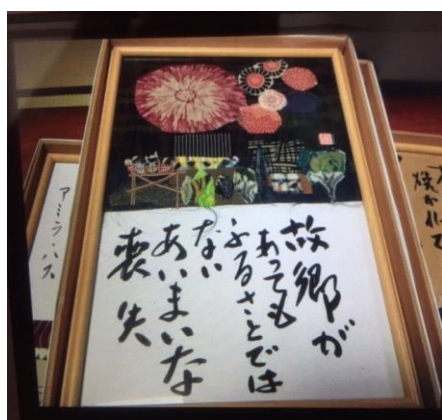 故郷が
あっても
ふるさとでは
ない
あいまいな
喪失
アミラ・ハス
焼かれて